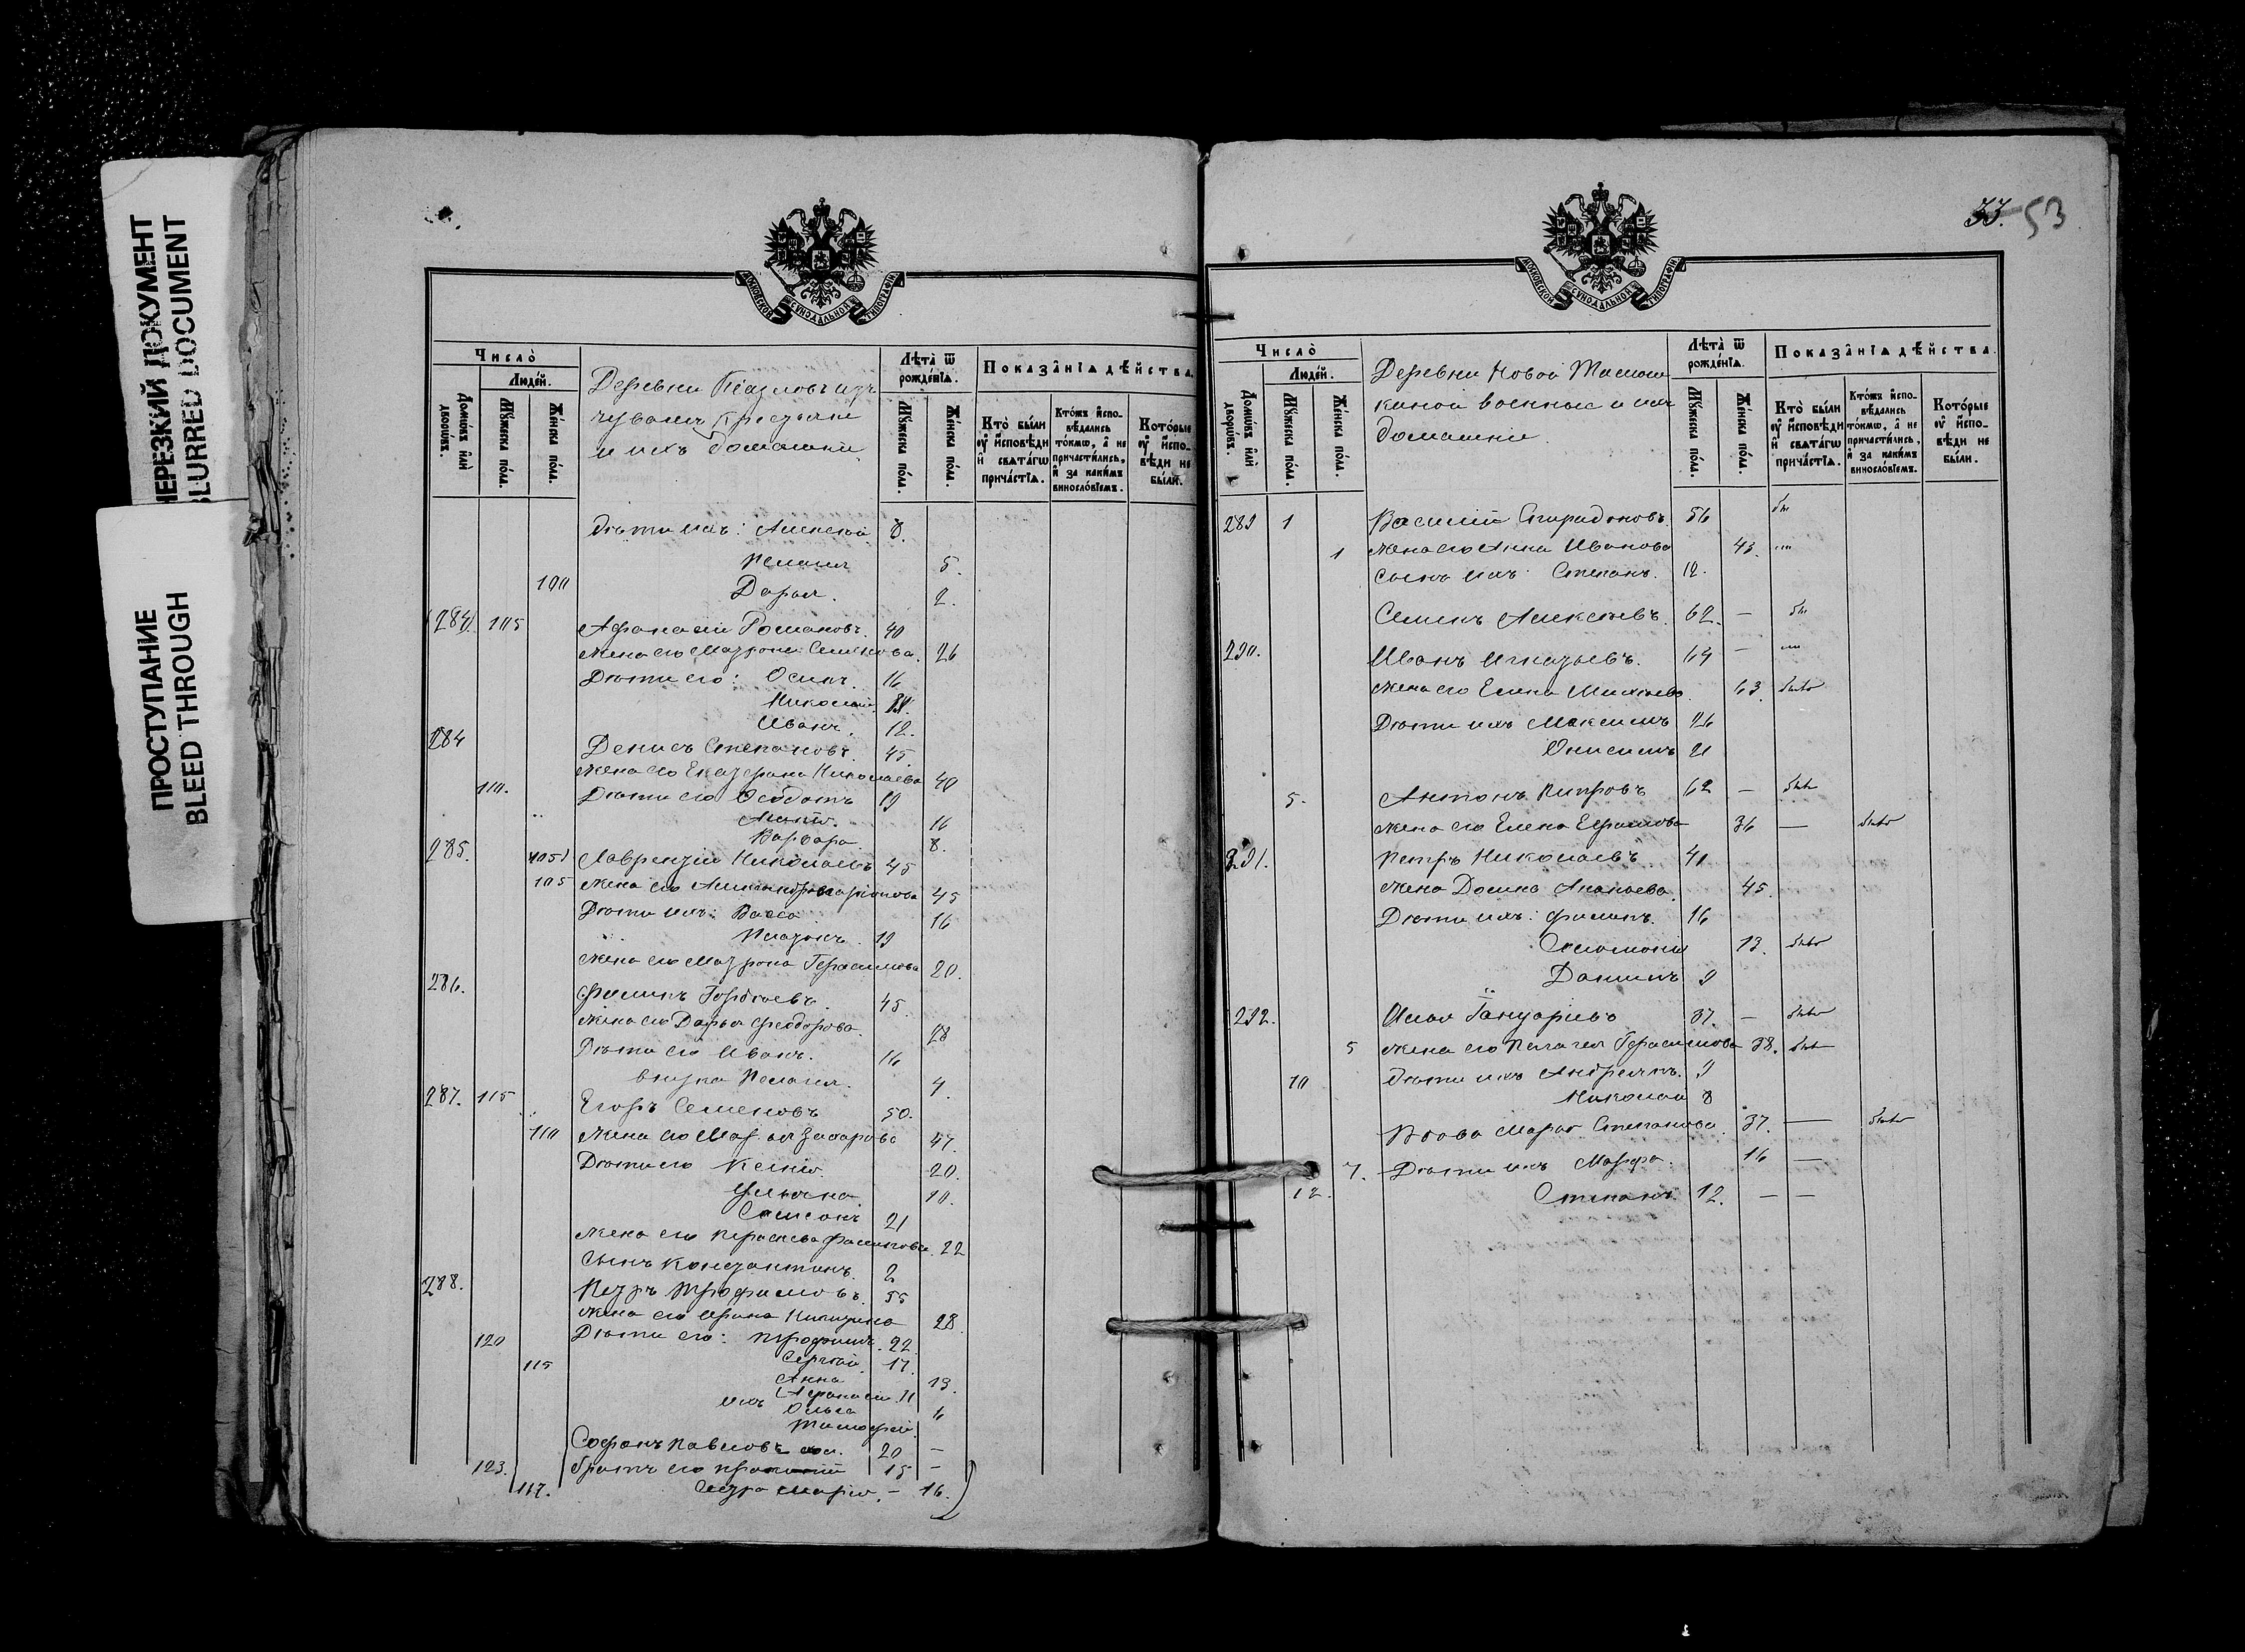 НЕРЕЗКИЙ ДОКУМЕНТ
BLURRED DOCUMENT
ПРОСТУПАНИЕ
BLEED THROUGH
МОСКОВСКОЙ СѴНОДАЛЬНОЙ ТИПОГРАФІИ
Число̀
Людей.
Домѡвъ или дворѡвъ.
Мꙋжеска пола.
Женска пола.
Деревни
крестьяне
и ихъ домашніе
Лѣта ѿ рожденїѧ.
Мꙋжеска пола.
Женска пола.
Показанїѧ дѣйства
Кто были ᲂу҆ исповѣди и свѧтагѡ причастїѧ.
Ктожъ исповѣдались токмѡ, а не причастились, и за какимъ винословїемъ.
Которые ᲂу҆ исповѣди не были.
Дѣти ихъ: Алексѣй 8.
Пелагія 5.
100 Дарья. 2.
(284) 105 Афанасій Романовъ. 40
Жена его Матрона Семенова. 26
Дѣти его: Осипъ. 16
Николай.
Иванъ. 12.
284 Денисъ Степановъ. 45.
Жена его Екатерина Николаева 40
110. Дѣти его Ѳеодотъ 19
16
Варвара 8.
285. 105) Лаврентій Николаевъ 45
105 Жена его Александра 45
Дѣти ихъ: Васса 16
Платонъ. 19
Жена его Матрона Герасимова 20.
286. Филипъ Гордѣевъ. 45.
Жена его Дарья Ѳеодорова. 28
Дѣти его Иванъ. 16
внука Пелагія. 4.
287. 115 Егоръ Семеновъ 50.
110 Жена его Марья Захарова 47.
Дѣти его Ксенія 20.
Ульяна 10.
Самсонъ 21
Жена его Прасковья Филипова 22
Сынъ Константинъ. 2
288. Петръ Трофимовъ. 55
Жена его Ирина Никитина 28
120 Дѣти его: Трофимъ. 22
115 Сергѣй 17.
Анна 13.
ихъ Афанасій. 11
Ольга 6
Тимофей.
Софонъ Павловъ 20 —
123. братъ его 15 —
117. Сестра Марія. — 16.
33. 53
МОСКОВСКОЙ СѴНОДАЛЬНОЙ ТИПОГРАФІИ
Число̀
Людей.
Домѡвъ или дворѡвъ.
Мꙋжеска пола.
Женска пола.
Деревни Новой
киной военные и ихъ
домашніе.
Лѣта ѿ рожденїѧ.
Мꙋжеска пола.
Женска пола.
Показанїѧ дѣйства.
Кто были ᲂу҆ исповѣди и свѧтагѡ причастїѧ.
Ктожъ исповѣдались токмѡ, а не причастились, и за какимъ винословїемъ.
Которые ᲂу҆ исповѣди не были.
289 1 Василій Спиридоновъ. 56
1 Жена его Анна Иванова 43.
Сынъ ихъ Степанъ. 12.
Семенъ Алексѣевъ. 62. —
290. Иванъ Игнатьевъ. 64 —
Жена его Елена 63.
Дѣти ихъ Максимъ 26
Онисимъ 21
5. Антонъ Петровъ 62 —
Жена его Елена Ефимова 36 —
291. Петръ Николаевъ. 41
Жена Домна Ананьева. 45.
Дѣти ихъ: Филипъ. 16
Соломонія 13.
Даніилъ 9
292. Исая 37. —
5 Жена его Пелагія Герасимова 38.
10 Дѣти ихъ Андреянъ. 9
Николай 8
Вдова Марья Степанова. 37. —
7. Дѣти ихъ Марфа. 16 —
12. Степанъ. 12. — —